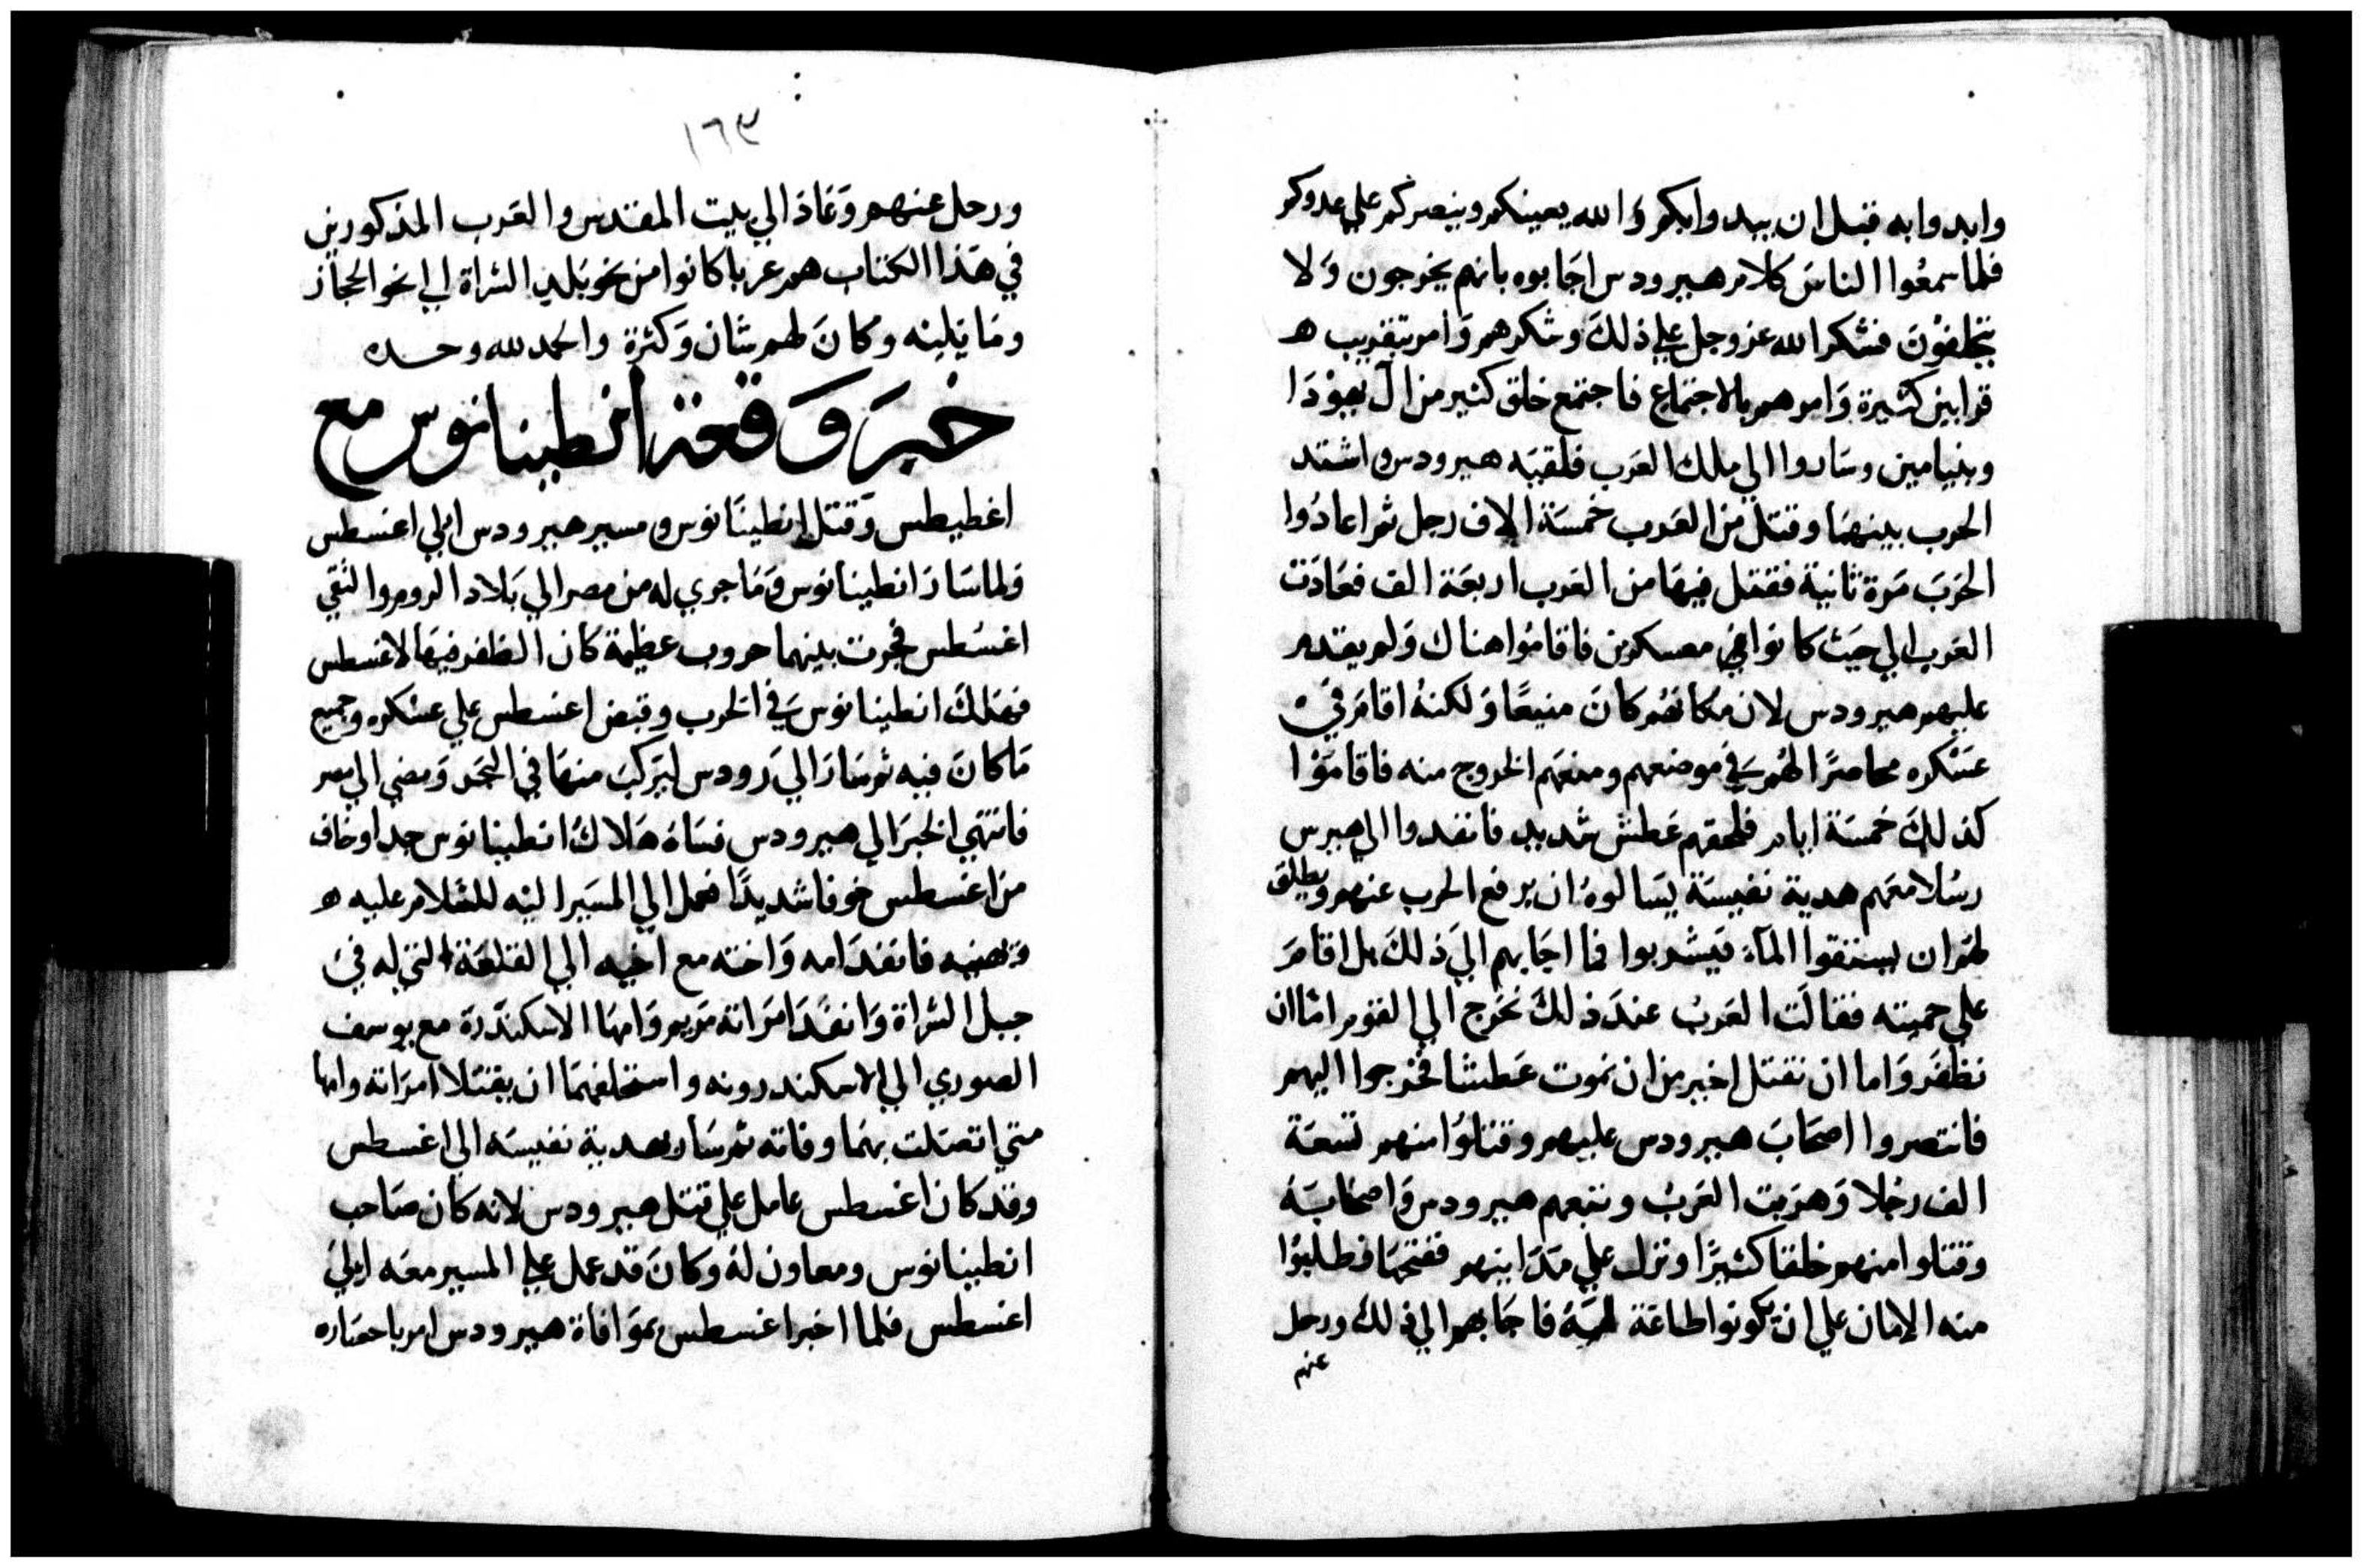 وابدوا به قبل ان يبدوا بكم والله يعينكم وينصركم على عدوكم
فلما سمعوا الناس كلام هيرودس اجابوه بانهم يخرجون ولا
يتخلفون فشكر الله عز وجل على ذلك وشكرهم وامر بتقريب ه
قرابين كثيرة وامرهم بالاجتماع فاجتمع خلق كثير من ال يهودا
وبنيامين وساروا الي ملك العرب فلقيه هيرودس واشتد
الحرب بينهما وقتل من العرب خمسة الاف رجل ثم اعادوا
الحرب مرة ثانية فقتل فيها من العرب اربعة الف فعادت
العرب الي حيث كانوا معسكرين فاقاموا هناك ولم يقدم
عليهم هيرودس لان مكانهم كان منيعا ولكنه اقام في
عسكره محاصرا لهم في موضعهم ومنعهم الخروج منه فاقاموا
كذلك خمسة ايام فلحقهم عطش شديد فانفدوا الي هيرس
رسلا معهم هدية نفيسة يسالوه ان يرفع الحرب عنهم ويطلق
لهم ان يستقوا الماء فيشربوا فما اجابهم الي ذلك بل اقام
علي حميته فقالت العرب عند ذلك نخرج الي القوم اما ان
نظفر واما ان نقتل اخير من ان نموت عطشا فخرجوا اليهم
فانتصروا اصحاب هيرودس عليهم وقتلوا منهم تسعة
الف رجلا وهربت العرب وتبعهم هيرودس واصحابه
وقتلوا منهم خلقا كثيرا ونزل علي مداينهم ففتحها فطلبوا
منه الامان علي ان يكونوا طاعة له فاجابهم الي ذلك ورحل
عنهم
١٦٣
ورحل عنهم وعاد الي بيت المقدس والعرب المذكورين
في هذا الكتاب هم عربا كانوا من نحو بلد الشراة الي نحو الحجاز
وما يليه وكان لهم شان وكثرة والحمد لله وحده
خبر وقعة انطينانوس مع
اغطيطس وقتل انطينانوس ومسير هيرودس الي اغسطس
ولما سار انطينانوس وما جري له من مصر الي بلاد الروم والتقي
اغسطس فجرت بينهما حروب عظيمة كان الظفر فيها لاغسطس
فهلك انطينانوس في الحرب وقبض اغسطس علي عسكره وجميع
ما كان فيه ثم سار الي رودس ليركب منها في البحر ومضي الي مصر
فانتهي الخبر الي هيرودس فساه هلاك انطينانوس جدا وخاف
من اغسطس خوفا شديدا فعمل الي المسير اليه للسلام عليه ه
وتهنيه فانفد امه واخته مع اخيه الي القلعة التي له في
جبل الشراة وانفد امراته مريم وامها الاسكندرة مع يوسف
الصوري الي الاسكندرونه واستخلفهما ان يقتلا امراته وامها
متي اتصلت بهما وفاته ثم سار بهدية نفيسه الي اغسطس
وقد كان اغسطس عامل علي قتل هيرودس لانه كان صاحب
انطينانوس ومعاون له وكان قد عمل علي المسير معه الي
اغسطس فلما اخبر اغسطس بموافاة هيرودس امر باحضاره